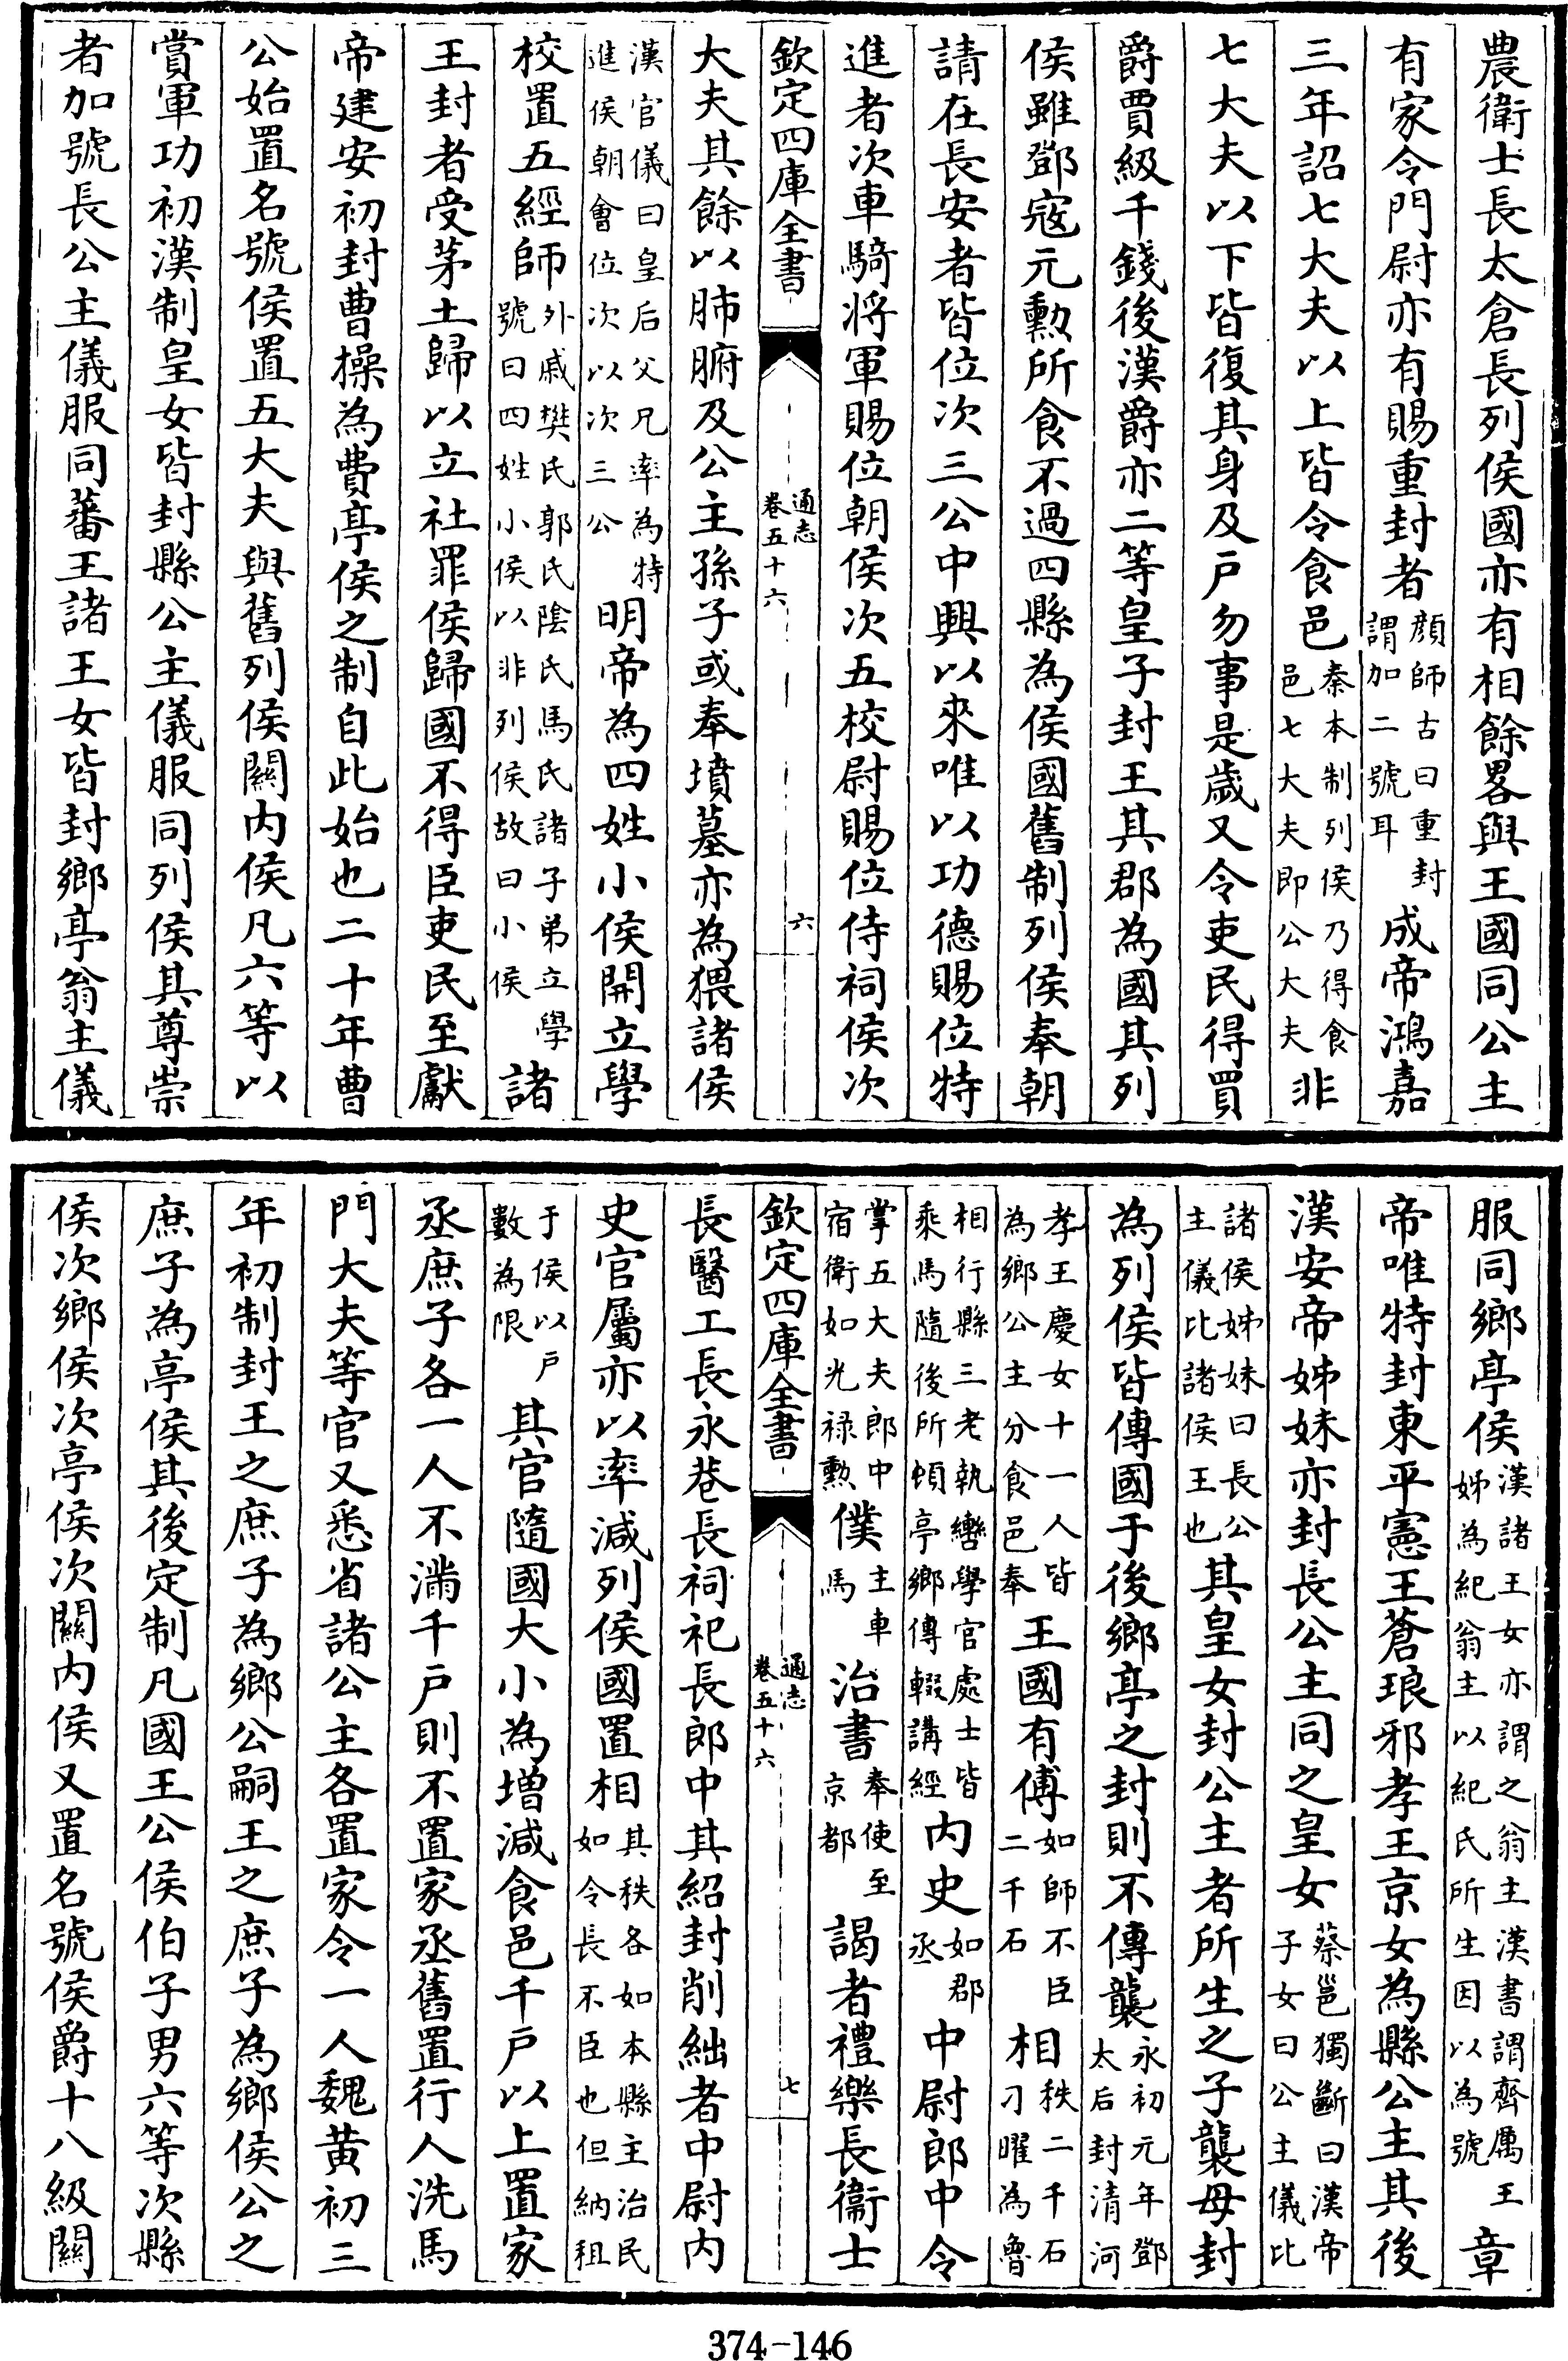 農衛士長太倉長列侯國亦有相餘畧與王國同公主
有家令門尉亦有賜重封者顔師古曰重封謂加二號耳成帝鴻嘉
三年詔七大夫以上皆令食邑秦本制列侯乃得食邑七大夫即公大夫非
七大夫以下皆復其身及戸勿事是歲又令吏民得買
爵賈級千錢後漢爵亦二等皇子封王其郡為國其列
侯雖鄧寇元勲所食不過四縣為侯國舊制列侯奉朝
請在長安者皆位次三公中興以來唯以功德賜位特
進者次車騎將軍賜位朝侯次五校尉賜位侍祠侯次
欽定四庫全書 通志卷五十六 六
大夫其餘以肺腑及公主孫子或奉墳墓亦為猥諸侯
漢官儀曰皇后父兄率為特進侯朝會位次以次三公明帝為四姓小侯開立學
校置五經師外戚樊氏郭氏陰氏馬氏諸子弟立學號曰四姓小侯以非列侯故曰小侯諸
王封者受茅土歸以立社罪侯歸國不得臣吏民至獻
帝建安初封曹操為費亭侯之制自此始也二十年曹
公始置名號侯置五大夫與舊列侯關内侯凡六等以
賞軍功初漢制皇女皆封縣公主儀服同列侯其尊崇
者加號長公主儀服同蕃王諸王女皆封鄉亭翁主儀
服同鄉亭侯漢諸王女亦謂之翁主漢書謂齊厲王姊為紀翁主以紀氏所生因以為號章
帝唯特封東平憲王蒼琅邪孝王京女為縣公主其後
漢安帝姊妹亦封長公主同之皇女蔡邕獨斷曰漢帝子女曰公主儀比
諸侯姊妹曰長公主儀比諸侯王也其皇女封公主者所生之子襲母封
為列侯皆傳國于後鄉亭之封則不傳襲永初元年鄧太后封清河
孝王慶女十一人皆為鄉公主分食邑奉王國有傅如師不臣二千石相秩二千石刁曜為魯
相行縣三老執轡學官處士皆乘馬隨後所頓亭鄉傳輟講經内史如郡丞中尉郎中令
掌五大夫郎中宿衛如光禄勲僕主車馬治書奉使至京都謁者禮樂長衛士
欽定四庫全書 通志卷五十六 七
長醫工長永巷長祠祀長郎中其紹封削絀者中尉内
史官屬亦以率減列侯國置相其秩各如本縣主治民如令長不臣也但納租
于侯以户數為限其官隨國大小為增減食邑千戸以上置家
丞庶子各一人不滿千戸則不置家丞舊置行人洗馬
門大夫等官又悉省諸公主各置家令一人魏黄初三
年初制封王之庶子為鄉公嗣王之庶子為鄉侯公之
庶子為亭侯其後定制凡國王公侯伯子男六等次縣
侯次鄉侯次亭侯次關内侯又置名號侯爵十八級關
374-146